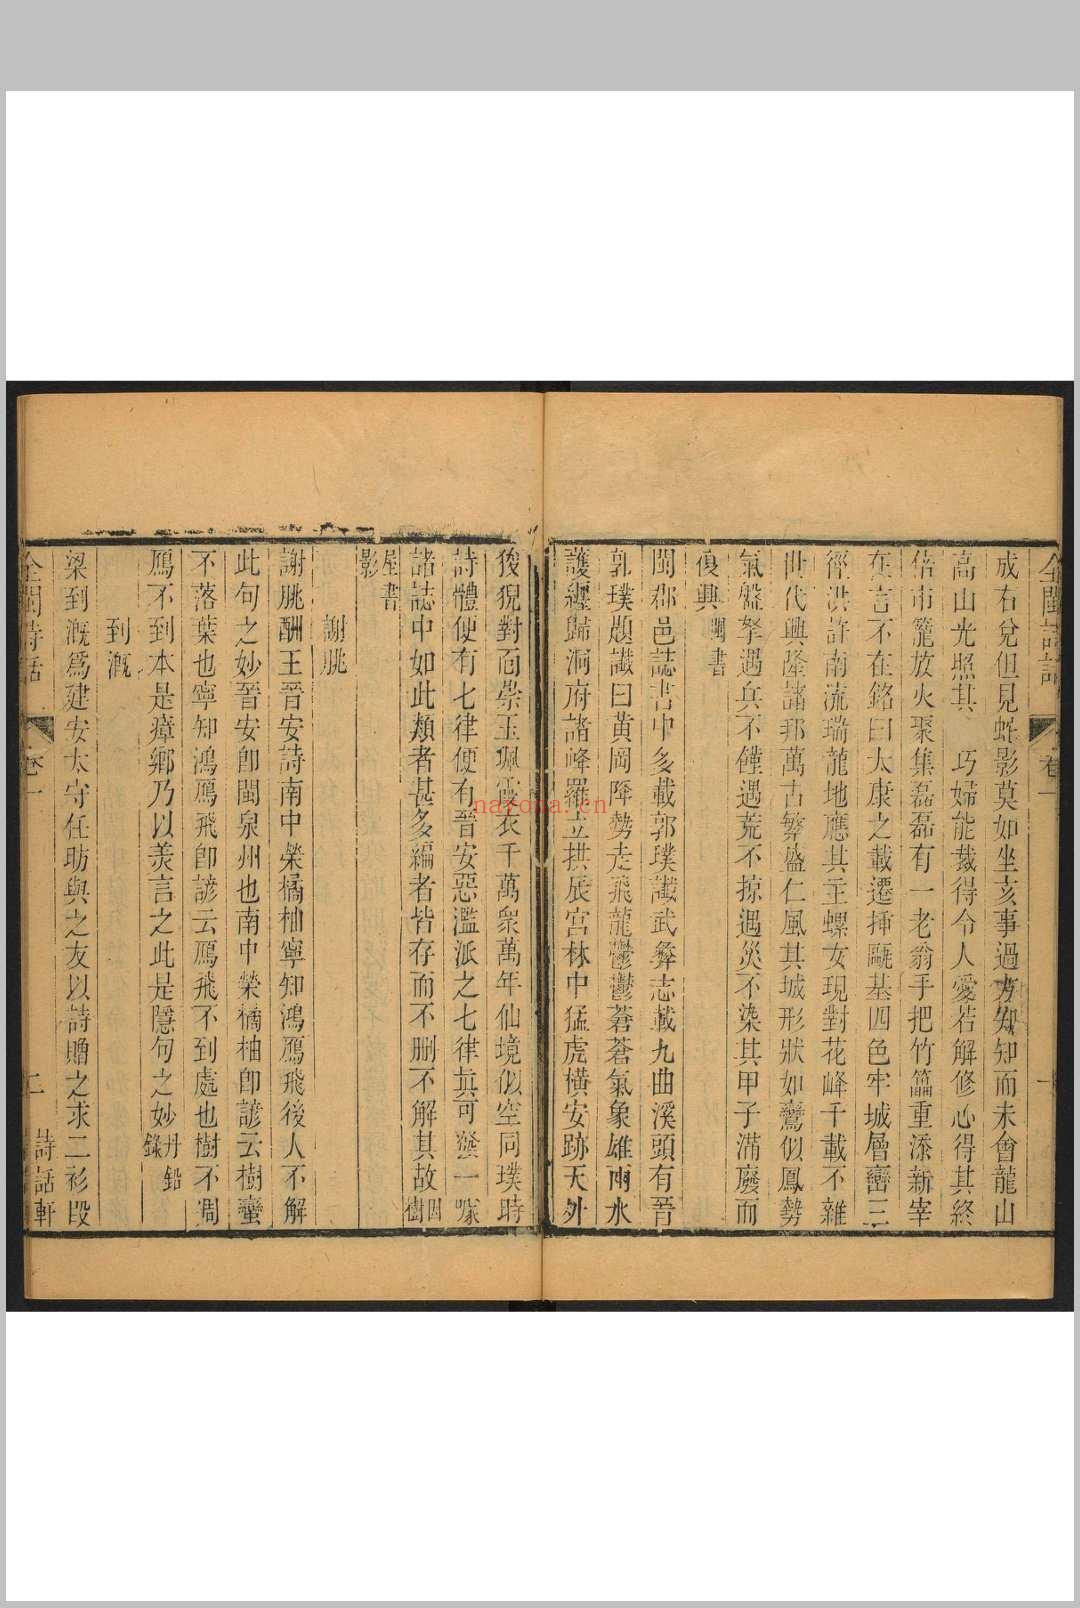 全閩詩話
卷一
成右兌但見蛇影莫如坐亥事過方知知而未會龍山
高山光照其 巧婦能裁得令人愛若解修心得其終
倍市籠放火聚集磊磊有一老翁手把竹籥重添新宰
在言不在銘曰大康之載遷插甌基四色牢城層巒三
徑洪許南流瑞龍地應其主螺女現對花峰千載不雜
世代興隆諸邦萬古繁盛仁風其城形狀如鸞似鳳勢
氣盤拏遇兵不饉遇荒不掠遇災不染其甲子滿廢而
復興閩書
閩郡邑誌書中多載郭璞讖武彝志載九曲溪頭有晉
郭璞題讖曰黃岡降勢走飛龍鬱鬱蒼蒼氣象雄兩水
護纏歸洞府諸峰羅立拱辰宮林中猛虎橫安跡天外
狻猊對面崇玉珮霞衣千萬衆萬年仙境似空同璞時
詩體便有七律便有晉安惡濫派之七律眞可發一噱
諸誌中如此類者甚多編者皆存而不刪不解其故因樹
屋書影
謝朓
謝朓酬王晉安詩南中榮橘柚寧知鴻鴈飛後人不解
此句之妙晉安卽閩泉州也南中榮橘柚卽諺云樹蠻
不落葉也寧知鴻鴈飛卽諺云鴈飛不到處也樹不凋
鴈不到本是瘴鄉乃以美言之此是隱句之妙丹鉛錄
到溉
梁到溉爲建安太守任昉與之友以詩贈之求二衫段
全閩詩話
卷一
二
詩話軒
nayona.cn